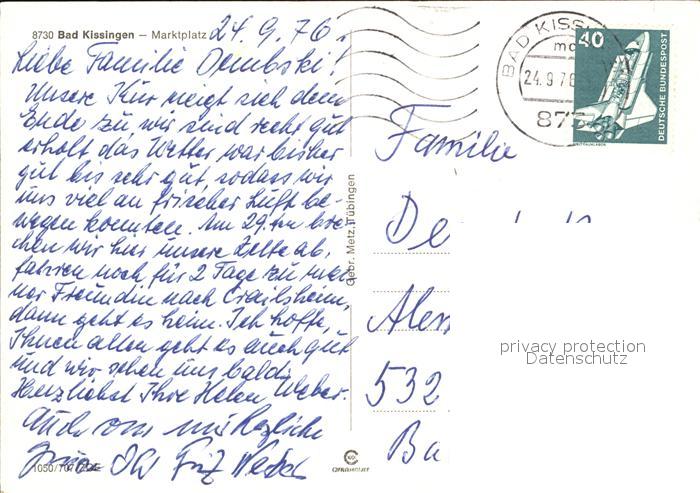 8730 Bad Kissingen – Marktplatz 24.9.76.
Liebe Familie Dembski!
Unsere Kur neigt sich dem
Ende zu, wir sind recht gut
erholt das Wetter war bisher
gut bis sehr gut, sodass wir
uns viel an frischer Luft be-
wegen konnten. Am 29.ten bre-
chen wir hier unsere Zelte ab,
fahren noch für 2 Tage zu mei-
ner Freundin nach Crailsheim,
dann geht es heim. Ich hoffe,
Ihnen allen geht es auch gut
und wir sehen uns bald.
Herzlichst Ihre Helen Weber.
Auch von mir herzliche
Fritz Weber
1050/707
Gebr. Metz, Tübingen
BAD KISSI
24.9.76
873
40
DEUTSCHE BUNDESPOST
Familie
De
Alem
532
Ba
privacy protection
Datenschutz